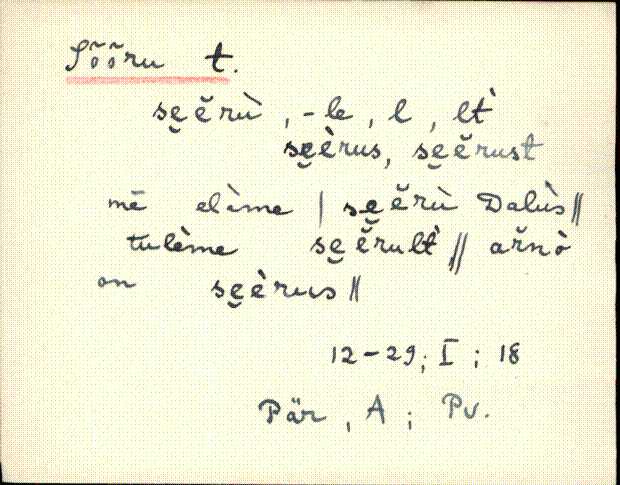 Sõõru t.
sẹĕrù, -le, l, lt̀
sẹèrus, sẹĕrust
mē elàme | sẹĕrù Dalùs ‖
tulème sẹĕrult̀ ‖ ařnò
on sẹèrus ‖
12-29; I; 18
Pär, A; Pv.